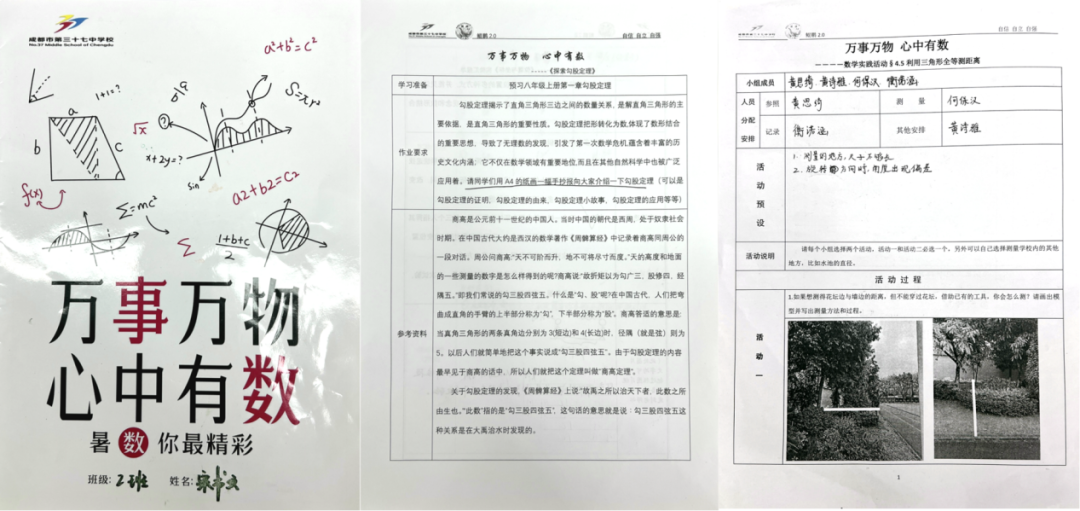 成都市第三十七中学校
No.37 Middle School of Chengdu
a²+b²=c²
1+1=?
a
b
c
√x
x+2y=?
sin
f(x)
a2+b2=C2
Σ=mc²
Σ
1+b+c
2
万事万物
心中有数
暑 数 你最精彩
班级: 2班 姓名:
鲲鹏 2.0
自信 自立 自强
万事万物 心中有数
-----《探索勾股定理》
学习准备
预习八年级上册第一章勾股定理
作业要求
勾股定理揭示了直角三角形三边之间的数量关系,是解直角三角形的主
要依据,是直角三角形的重要性质。勾股定理把形转化为数,体现了数形结合
的重要思想,导致了无理数的发现,引发了第一次数学危机,蕴含着丰富的历
史文化内涵,它不仅在数学领域有重要地位,而且在其他自然科学中也被广泛
应用着。请同学们用 A4 的纸画一幅手抄报向大家介绍一下勾股定理(可以是
勾股定理的证明,勾股定理的由来,勾股定理小故事,勾股定理的应用等等)
参考资料
商高是公元前十一世纪的中国人。当时中国的朝代是西周,处于奴隶社会
时期。在中国古代大约是西汉的数学著作《周髀算经》中记录着商高同周公的
一段对话。周公问商高:"天不可阶而升,地不可将尽寸而度。"天的高度和地面
的一些测量的数字是怎么样得到的呢?商高说:"故折矩以为勾广三、股修四、经
隅五。"即我们常说的勾三股四弦五。什么是"勾、股"呢?在中国古代,人们把弯
曲成直角的手臂的上半部分称为"勾",下半部分称为"股"。商高答话的意思是:
当直角三角形的两条直角边分别为 3(短边)和 4(长边)时,径隅(就是弦)则为
5。以后人们就简单地把这个事实说成"勾三股四弦五"。由于勾股定理的内容
最早见于商高的话中,所以人们就把这个定理叫做"商高定理"。
关于勾股定理的发现,《周髀算经》上说:"故禹之所以治天下者,此数之所
由生也。"此数"指的是"勾三股四弦五",这句话的意思就是说:勾三股四弦五这
种关系是在大禹治水时发现的。
鲲鹏 2.0
自信 自立 自强
万事万物 心中有数
----数学实践活动§4.5 利用三角形全等测距离
小组成员
黄思绮 黄诗雅 何保汉
人员
分配
安排
参照
黄思绮
测 量
何保汉
记录
其他安排
黄诗雅
活
动
预
设
活动说明
请每个小组选择两个活动。活动一和活动二必选一个。另外可以自己选择测量学校内的其他
地方,比如水池的直径。
活 动 过 程
活
动
一
1.如果想测得花坛边与墙边的距离,但不能穿过花坛,借助已有的工具,你会怎么测?请画出模
型并写出测量方法和过程。
1